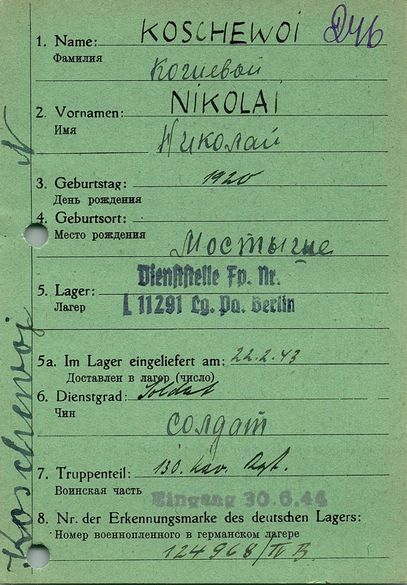 1. Name: KOSCHEWOI
Фамилия
Кошевой
2. Vornamen: NIKOLAI
Имя
Николай
3. Geburtstag: 1920
День рождения
4. Geburtsort:
Место рождения
Мостыще
Dienststelle Fp. Nr.
5. Lager: L 11291 Lg. Pa. Berlin
Лагер
5a. Im Lager eingeliefert am: 22.2.43
Доставлен в лагер (число)
6. Dienstgrad: Soldat
Чин
солдат
7. Truppenteil: 130. Kav. Rgt.
Воинская часть
Eingang 30.6.44
8. Nr. der Erkennungsmarke des deutschen Lagers:
Номер военнопленного в германском лагере
124968/ П В
Koschewoj N